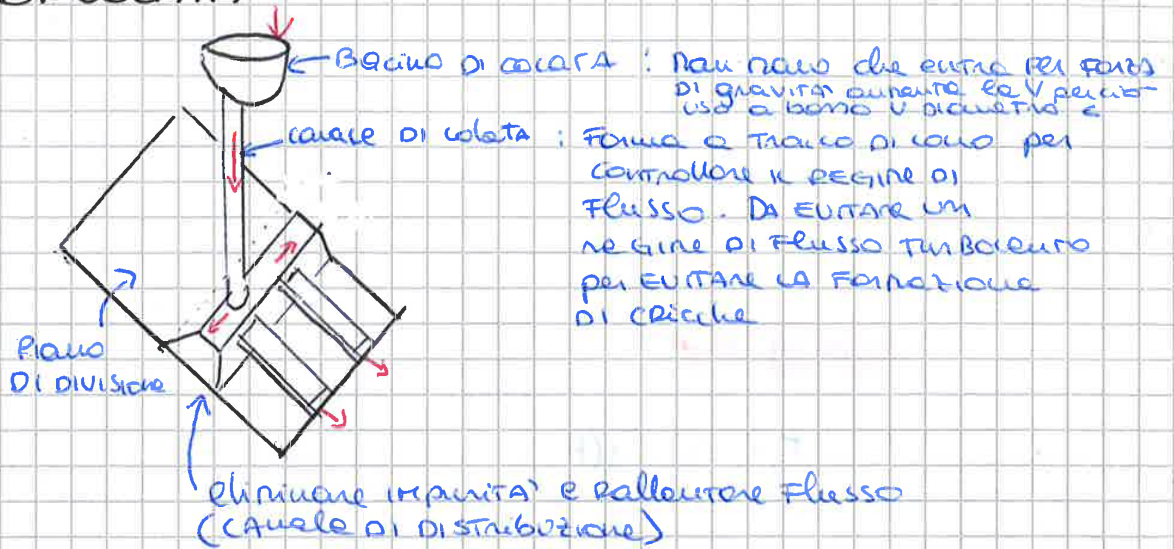 Bacino DI COLATA : man mano che entra per forza
DI gravità aumenta la V perciò
uso a bassa V diametro
canale DI colata : Forma a Tronco DI cono per
controllare il REGIME DI
Flusso. DA EVITARE UN
REGIME DI Flusso TURBOLENTO
per EVITARE LA FORMAZIONE
DI CRICCHE
Piano
DI DIVISIONE
eliminare IMPURITA' e Rallentare Flusso
(CANALE DI DISTRIBUZIONE)